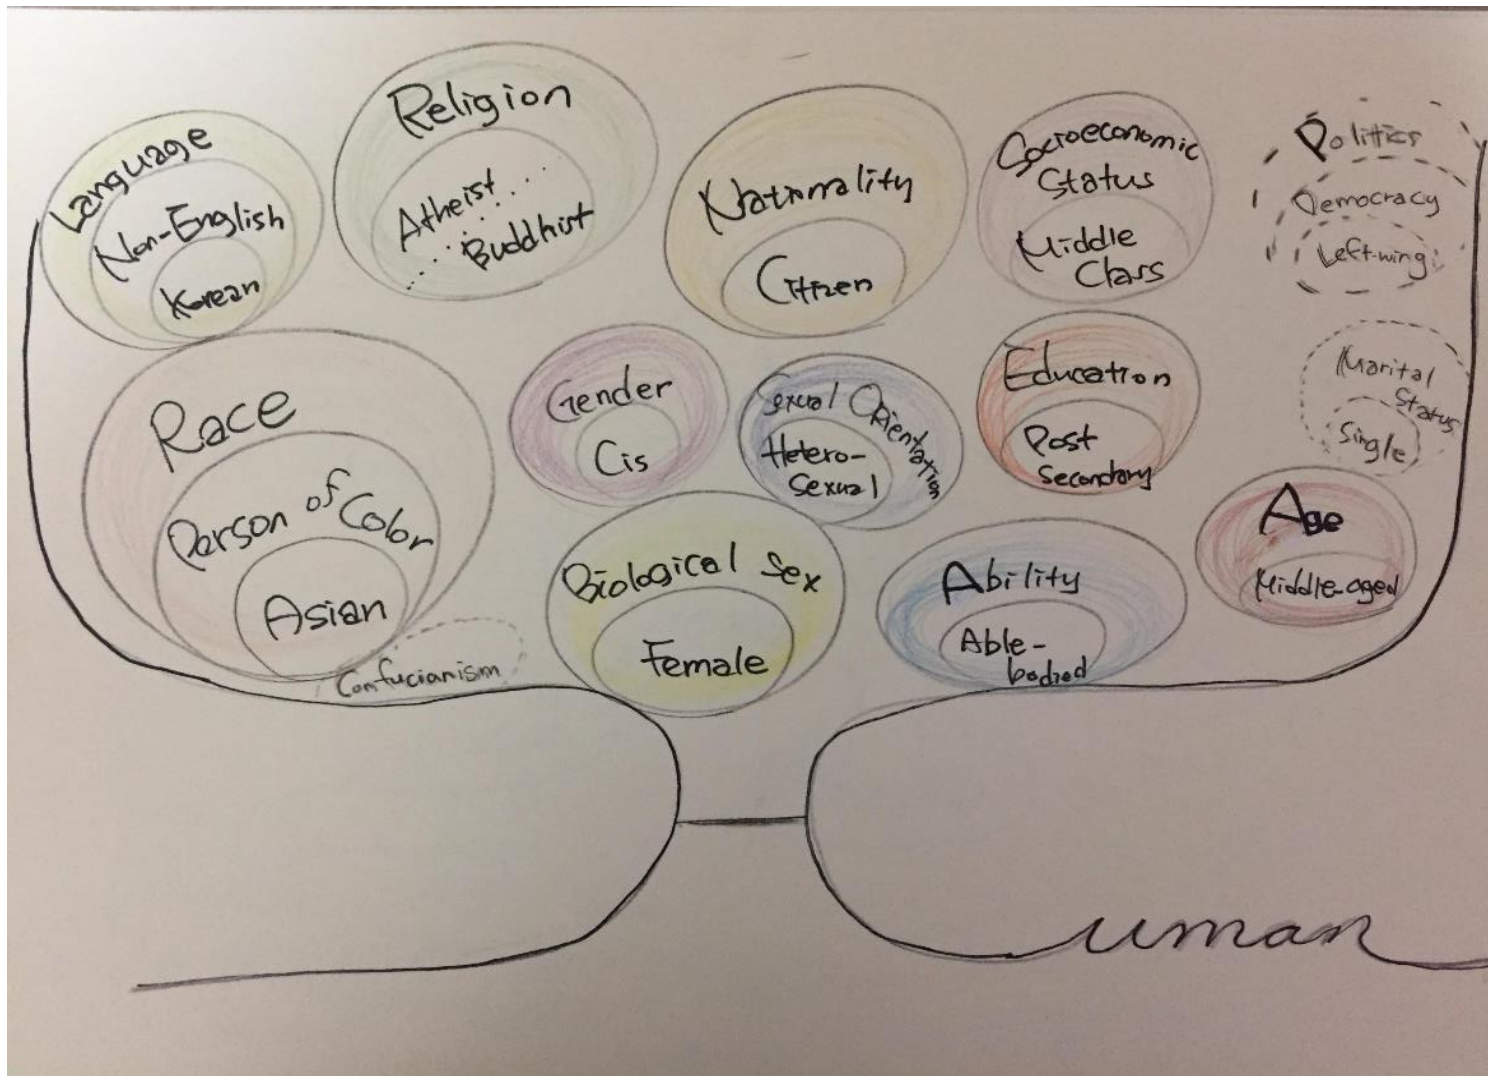 Language
Non-English
Korean
Religion
Atheist....
.....
.....Buddhist
Nationality
Citizen
Socioeconomic
Status
Middle
Class
Politics
Democracy
Left-wing
Race
Person of Color
Asian
Confucianism
Gender
Cis
Sexual Orientation
Hetero-
Sexual
Education
Post
Secondary
Marital
Status
Single
Biological Sex
Female
Ability
Able-
bodied
Age
Middle-aged
uman